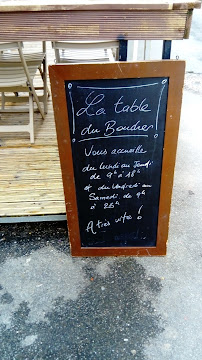 La table
du Boudres
Vous accueille
du lundi au Jeudi
de 9h à 18h
et du Vendredi au
Samedi de 9h
à 22h
A très vite !